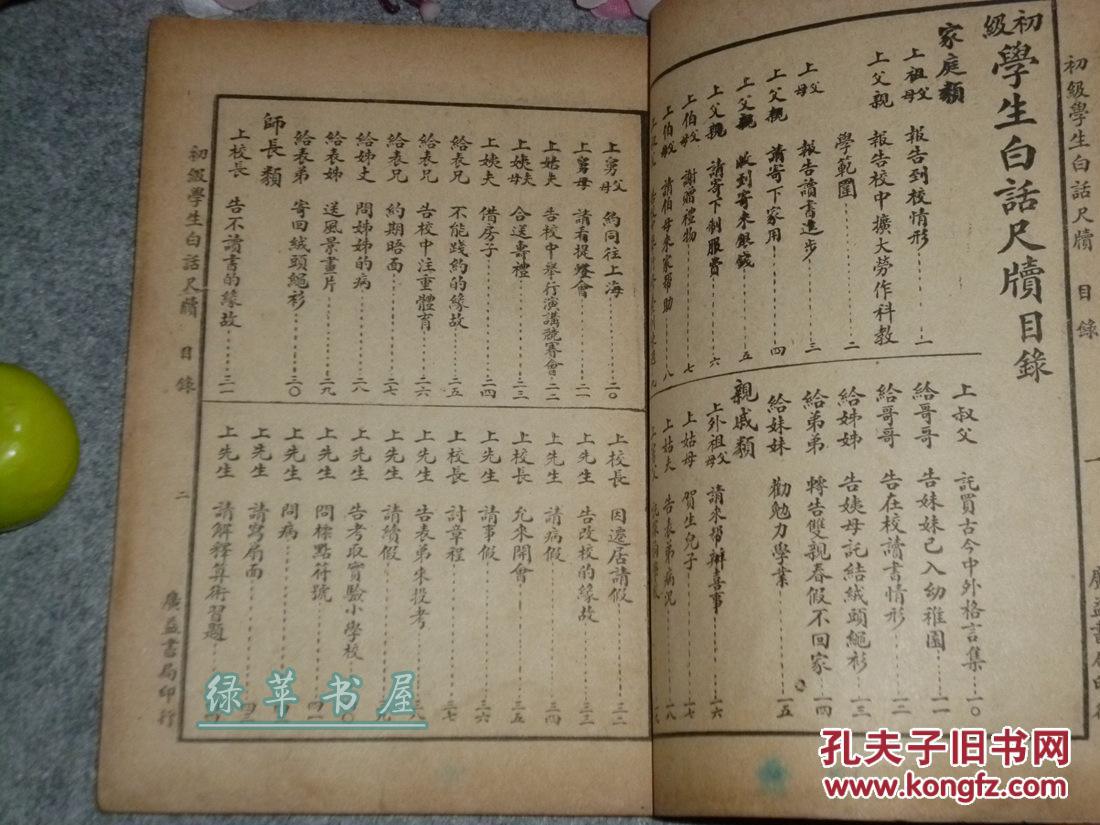 初級學生白話尺牘 目錄
初級學生白話尺牘目錄
家庭類
上祖父母 報告到校情形 一
上父親 報告校中擴大勞作科教學範圍 二
上父母 報告讀書進步 三
上父親 請寄下家用 四
上父親 收到寄來銀錢 五
上父親 請寄下制服費 六
上伯父母 謝贈禮物 七
上伯父母 請伯母來家幫助 八
上叔父 託買古今中外格言集 一〇
給哥哥 告妹妹已入幼稚園 一一
給哥哥 告在校讀書情形 一二
給姊姊 告姨母託結絨頭繩衫 一三
給弟弟 轉告雙親春假不回家 一四
給妹妹 勸勉力學業 一五
親戚類
上外祖父母 請來幫辦喜事 一六
上姑母 賀生兒子 一七
上姑夫 告表弟病況 一八
上舅父母 約同往上海 二〇
上舅母 請看提燈會 二一
上姑夫 告校中舉行演講競賽會 二二
上姨夫母 合送壽禮 二三
上姨夫 借房子 二四
給表兄 不能踐約的緣故 二五
給表兄 告校中注重體育 二六
給表兄 約期晤面
給姊丈 問姊姊的病 二八
給表姊 送風景畫片 二九
給表弟 寄回絨頭繩衫 三〇
師長類
上校長 告不讀書的緣故 三一
上校長 因遷居請假 三二
上先生 告改校的緣故 三三
上先生 請病假 三四
上校長 允來開會 三五
上先生 請事假 三六
上校長 討章程 三七
上先生 告表弟來投考 三八
上先生 請續假
上先生 告考取實驗小學校
上先生 問標點符號 四一
上先生 問病
上先生 請寫扇面
上先生 請解釋算術習題
初級學生白話尺牘 目錄 二 廣益書局印行
绿苹书屋
孔夫子旧书网
www.kongfz.com